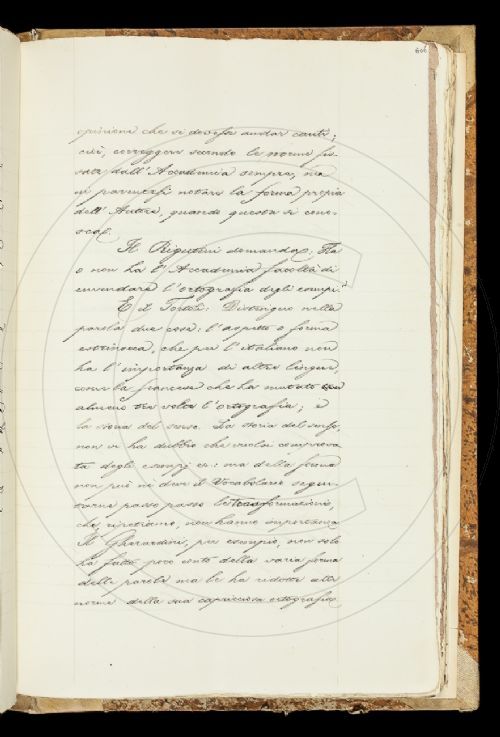 606
opinione che si dovesse andar cauti;
cioè, correggere secondo le norme fis-
sate dall'Accademia sempre, ma
ni notare la forma propria
dell'Autore, quando questa si cono-
sca.
Il Rigutini domanda: Ha
o non ha l'Accademia facoltà di
emendare l'ortografia degli esempi?
E il Tortoli: Distinguo nella
parola due cose: l'aspetto o forma
estrinseca, che per l'italiano non
ha l'importanza di altre lingue,
come la francese che ha mutato
almeno tre volte l'ortografia; e
la storia del senso. La storia del senso,
non vi ha dubbio che vuol comprova-
ta degli esempi: ma della forma
non può nè deve il Vocabolario segui-
tarne passo passo le trasformazioni,
che, ripetiamo, non hanno importanza.
Il Gherardini, per esempio, non solo
ha fatto poco conto della varia forma
delle parole ma le ha ridotte alle
norme della sua capricciosa ortografia.